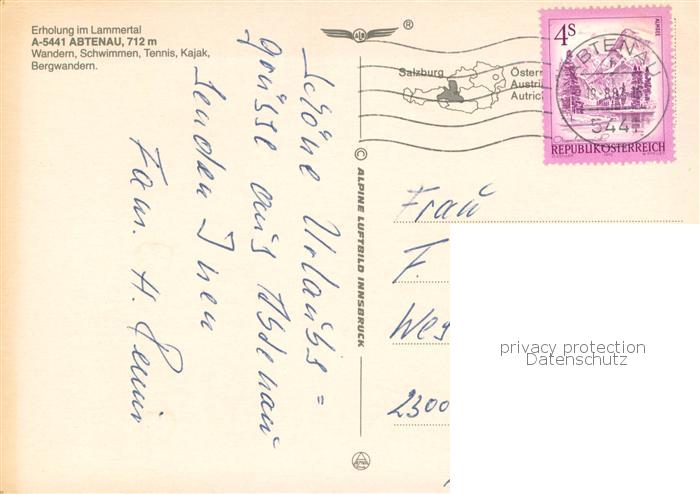 Erholung im Lammertal
A-5441 ABTENAU, 712 m
Wandern, Schwimmen, Tennis, Kajak,
Bergwandern.
®
Schöne Urlaubs =
grüsse aus Abtenau
senden Inen
Fam. H.
© ALPINE LUFTBILD INNSBRUCK
Salzburg
Österr
Austria
Autric
4S
ALMSEE
REPUBLIK ÖSTERREICH
ABTENAU
5441
Frau
F.
Wes
2300
privacy protection
Datenschutz